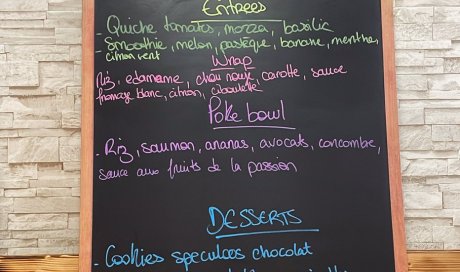 Entrees
- Quiche tomates, mozza, basilic
- Smoothie, melon, pastèque, banane, menthe,
citron vert
Wrap
Riz, edamame, chou rouge, carotte, sauce
fromage blanc, citron, ciboulette
Poke bowl
- Riz, saumon, ananas, avocats, concombre,
sauce aux fruits de la passion
DESSERTS
- Cookies speculoos chocolat